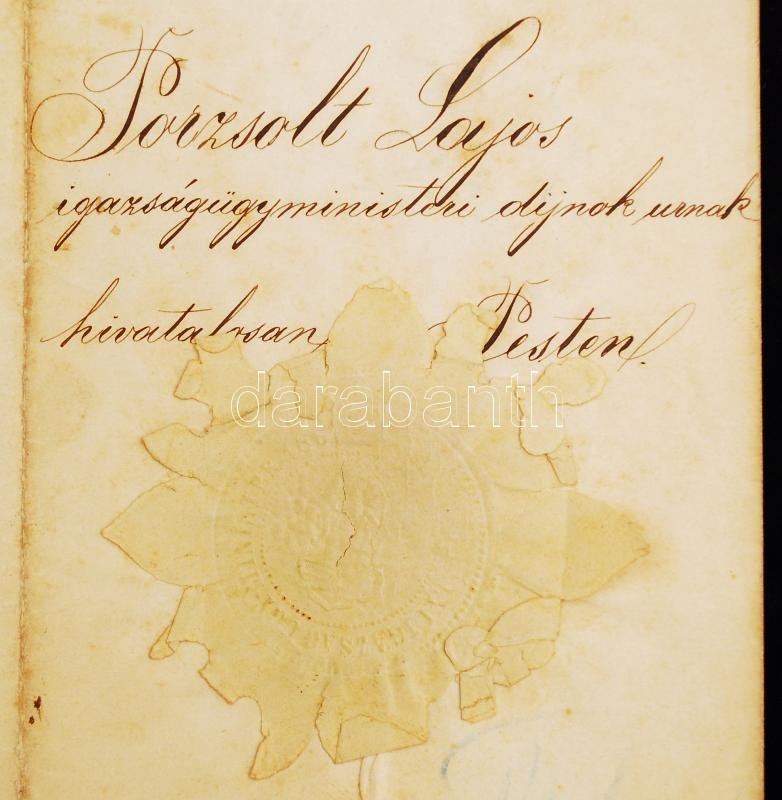 Porzsolt Lajos
igazságügyministeri dijnok urnak
hivatalosan Pesten.
darabanth